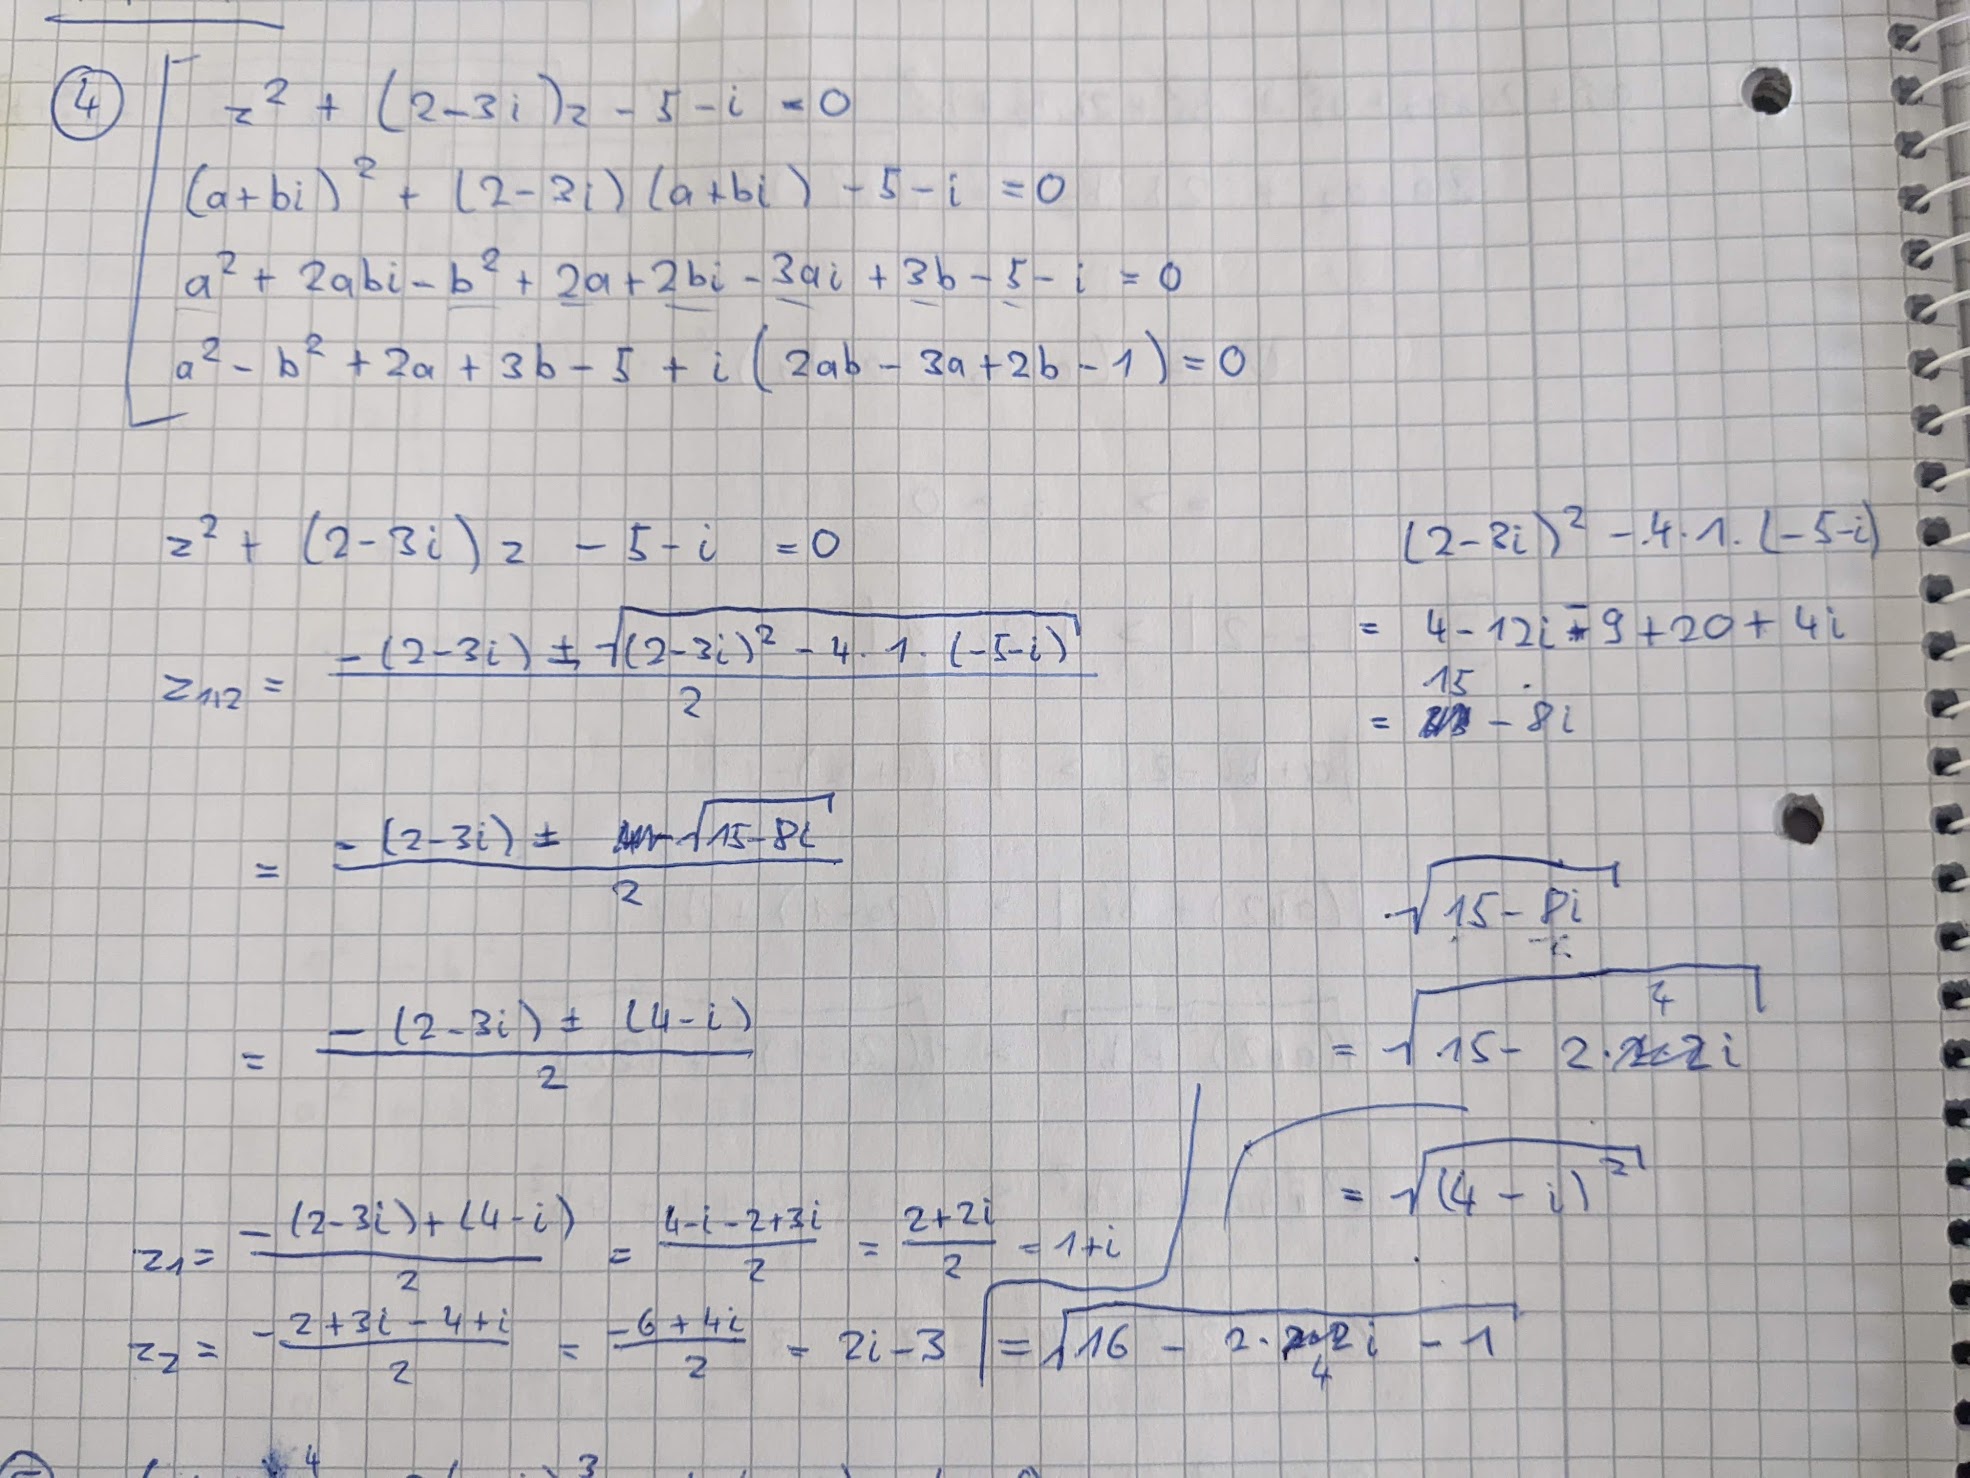 ④ z² + (2-3i)z - 5 - i = 0
(a+bi)² + (2-3i)(a+bi) - 5 - i = 0
a² + 2abi - b² + 2a + 2bi - 3ai + 3b - 5 - i = 0
a² - b² + 2a + 3b - 5 + i(2ab - 3a + 2b - 1) = 0
z² + (2-3i)z - 5 - i = 0
z₁,₂ = (-(2-3i) ± √((2-3i)² - 4·1·(-5-i))) / 2
= (-(2-3i) ± √(15-8i)) / 2
= (-(2-3i) ± (4-i)) / 2
z₁ = (-(2-3i)+(4-i)) / 2 = (4-i-2+3i) / 2 = (2+2i) / 2 = 1+i
z₂ = (-2+3i-4+i) / 2 = (-6+4i) / 2 = 2i-3
(2-3i)² - 4·1·(-5-i)
= 4 - 12i - 9 + 20 + 4i
= 15 - 8i
√(15-8i)
= √(15 - 2·4i)
= √(16 - 2·4i - 1)
= √((4-i)²)